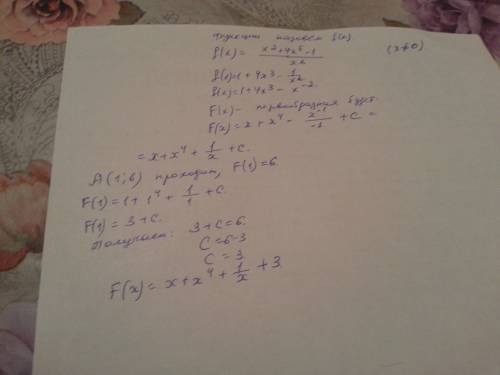 функцию назовем f(x).
f(x) = \frac{x^2+4x^5-1}{x^2} (x≠0)
f(x)=1 + 4x^3 - \frac{1}{x^2}
f(x)=1+4x^3 - x^{-2}
F(x) - первообразная будет
F(x) = x + x^4 - \frac{x^{-1}}{-1} + C =
= x+x^4 + \frac{1}{x} + C.
A(1;6) проходит, F(1)=6.
F(1)=1+1^4 + \frac{1}{1} + C.
F(1) = 3+C.
Получаем: 3+C=6.
C=6-3
C=3
F(x)= x+x^4+\frac{1}{x} +3